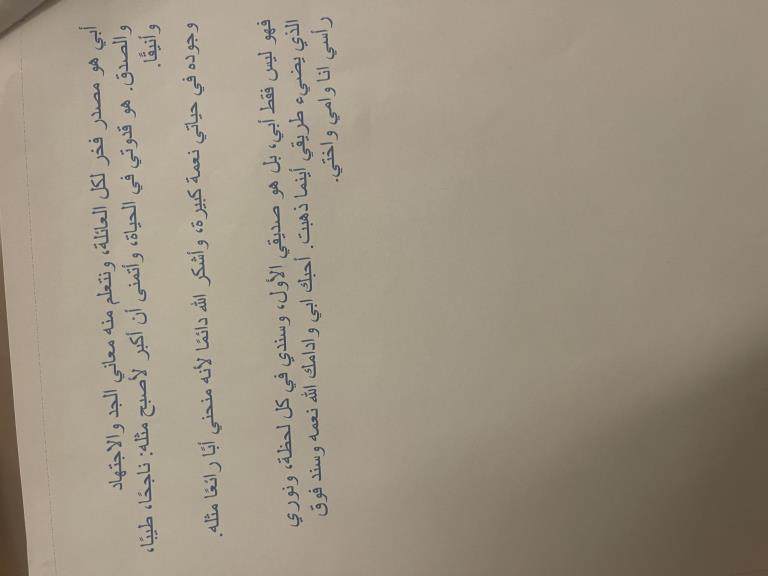 أبي هو مصدر فخر لكل العائلة، ونتعلم منه معاني الجد والاجتهاد
والصدق. هو قدوتي في الحياة، وأتمنى أن أكبر لأصبح مثله: ناجحًا، طيبًا،
وأنيقًا.
وجوده في حياتي نعمة كبيرة، وأشكر الله دائمًا لأنه منحني أبًا رائعًا مثله.
فهو ليس فقط أبي، بل هو صديقي الأول، وسندي في كل لحظة، ونوري
الذي يضيء طريقي أينما ذهبت. أحبك ابي وادامك الله نعمه وسند فوق
رأسي انا وامي واختي.